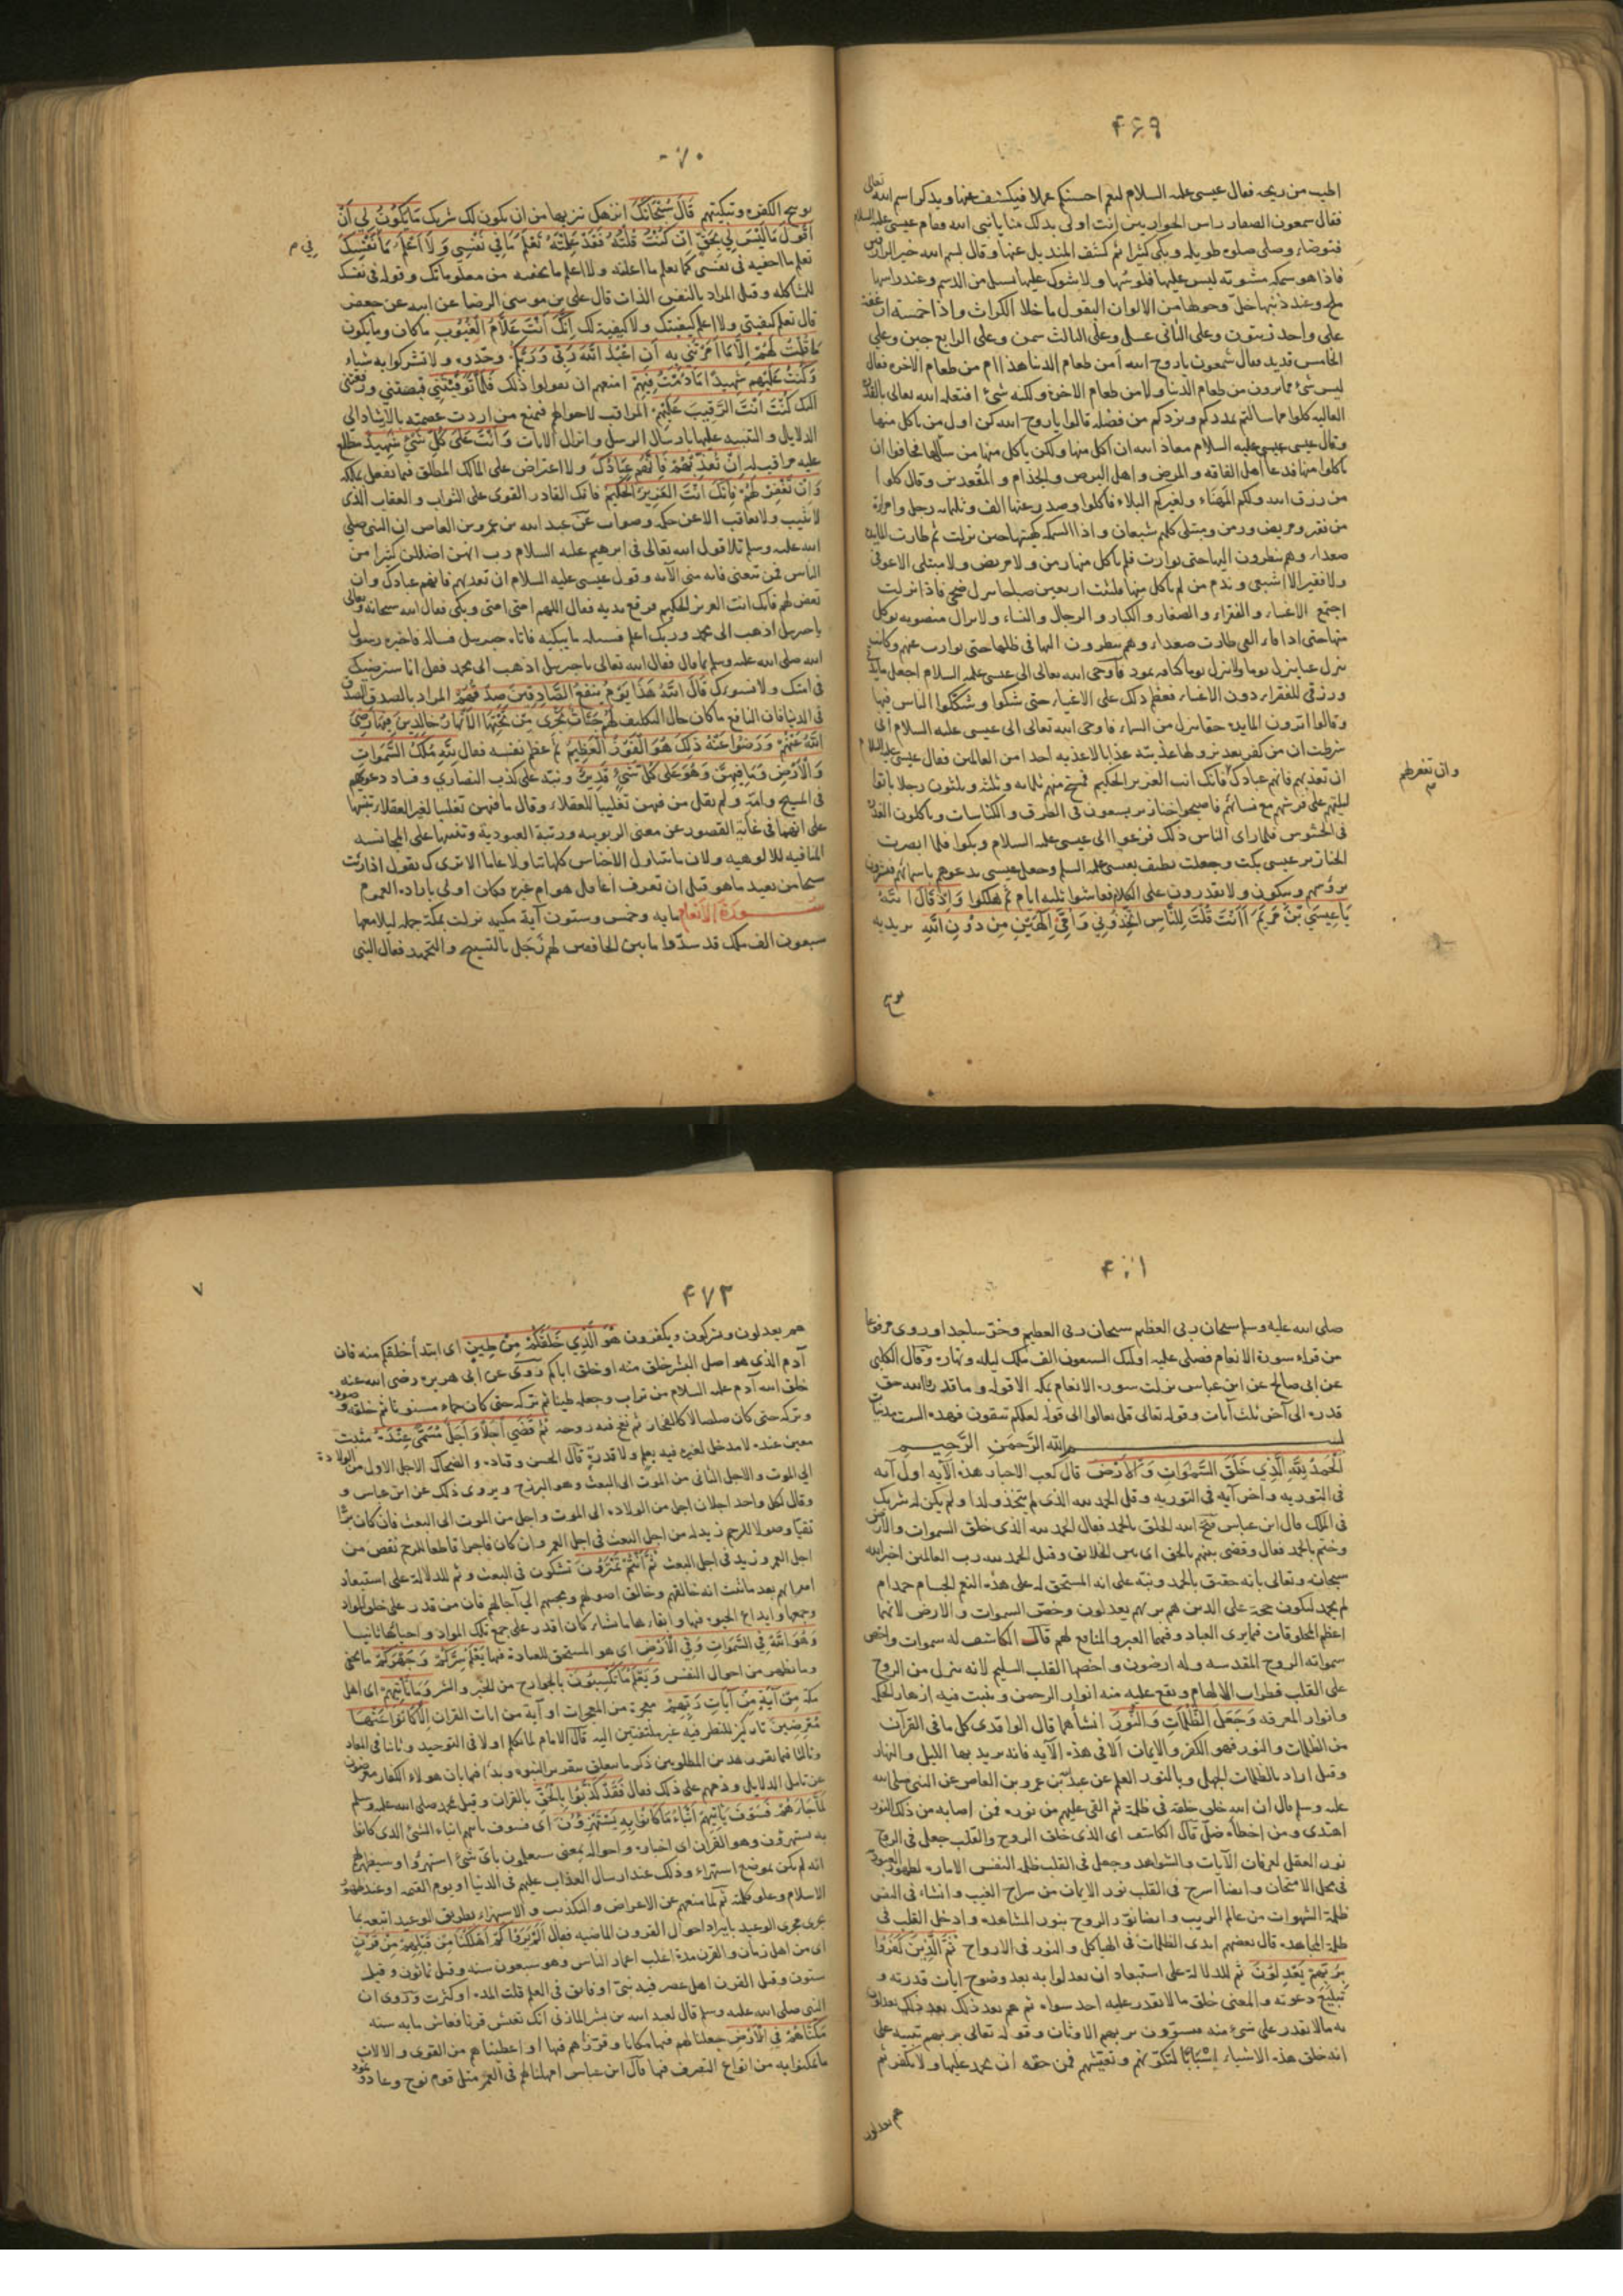 ۴۶۹
اطيب من ريحه فقال عيسى عليه السلام ليقم احسنكم عملا فيكشف عنها ويذكر اسم الله تعالى
فقال شمعون الصفار راس الحواريين انت اولى بذلك منا يا نبي الله فقام عيسى عليه السلام
فتوضاء وصلى صلوة طويلة وبكى كثيرا ثم كشف المنديل عنها وقال بسم الله خير الرازقين
فاذا هو سمكة مشوية ليس عليها فلوسها ولا شوك عليها تسيل من الدسم وعند راسها
ملح وعند ذنبها خل وحولها من الالوان البقول ما خلا الكراث واذا خمسة ارغفة
على واحد زيتون وعلى الثاني عسل وعلى الثالث سمن وعلى الرابع جبن وعلى
الخامس قديد فقال شمعون يا روح الله أمن طعام الدنيا هذا ام من طعام الاخرة فقال
ليس شئ مما ترون من طعام الدنيا ولا من طعام الاخرة ولكنه شئ افتعله الله تعالى بالقدرة
العالية كلوا مما سالتم يمددكم ويزدكم من فضله قالوا يا روح الله كن اول من ياكل منها
وقال عيسى عليه السلام معاذ الله ان اكل منها ولكن ياكل منها من سألها فخافوا ان
ياكلوا منها فدعا أهل الفاقة والمرض واهل البرص والجذام والمقعدين وقال كلوا
من رزق الله ولكم المهناء ولغيركم البلاء فاكلوا وصدر عنها الف وثلثمائة رجل وامراة
من فقير ومريض وزمن ومبتلى كلهم شبعان واذا السمكة كهيئتها حين نزلت ثم طارت المايدة
صعداء وهم ينظرون اليها حتى توارت فلم ياكل منها زمن ولا مريض ولا مبتلى الا عوفي
ولا فقير الا اشبعى وندم من لم ياكل منها فلبثت اربعين صباحا تنزل ضحى فاذا نزلت
اجتمع الاغنياء والفقراء والصغار والكبار والرجال والنساء ولا تزال منصوبة يوكل
منها حتى اذا فاء الفئ طارت صعداء وهم ينظرون اليها في ظلها حتى توارت عنهم وكانت
تنزل غبا تنزل يوما ولا تنزل يوما كناقة ثمود فاوحى الله تعالى الى عيسى عليه السلام اجعل مايدتي
ورزقي للفقراء دون الاغنياء فعظم ذلك على الاغنياء حتى شكوا وشككوا الناس فيها
وقالوا اترون المايدة حقا تنزل من السماء فاوحى الله تعالى الى عيسى عليه السلام انى
شرطت ان من كفر بعد نزولها عذبته عذابا لا عذبه احدا من العالمين فقال عيسى عليه السلام
ان تعذبهم فانهم عبادك فانك انت العزيز الحكيم فمسخ منهم ثلثمائة وثلث وثلثون رجلا باتوا
وان تغفر لهم
ليلتهم على فرشهم مع نسائهم فاصبحوا خنازير يسعون في الطرق والكناسات وياكلون العذرة
في الحشوش فلما راى الناس ذلك فزعوا الى عيسى عليه السلام وبكوا فلما ابصرت
الخنازير عيسى بكت وجعلت تطيف بعيسى عليه السلم وجعل عيسى يدعوهم باسمائهم فيشيرون
برؤسهم ويبكون ولا يقدرون على الكلام فعاشوا ثلثة ايام ثم هلكوا وَاِذْ قَالَ اللّٰهُ
يَا عِيسَى بْنَ مَرْيَمَ أَأَنْتَ قُلْتَ لِلنَّاسِ اتَّخِذُونِي وَأُمِّيَ اِلٰهَيْنِ مِنْ دُونِ اللّٰهِ يريد به
توبيخ
توبيخ الكفرة وتبكيتهم قَالَ سُبْحَانَكَ انزهك تنزيها من ان يكون لك شريك مَا يَكُونُ لِي أَنْ
أَقُولَ مَا لَيْسَ لِي بِحَقٍّ اِنْ كُنْتُ قُلْتُهُ فَقَدْ عَلِمْتَهُ تَعْلَمُ مَا فِي نَفْسِي وَلَا اَعْلَمُ مَا نَفْسِكَ
في م
تعلم ما اخفيه في نفسي كما تعلم ما اعلنه ولا اعلم ما تخفيه من معلوماتك وقوله في نفسك
للمشاكلة وقيل المراد بالنفس الذات قال علي بن موسى الرضا عن ابيه عن جعفر
قال تعلم كيفيتي ولا اعلم كيفيتك ولا كيفية لك اِنَّكَ اَنْتَ عَلَّامُ الْغُيُوبِ ما كان وما يكون
مَا قُلْتُ لَهُمْ اِلَّا مَا اَمَرْتَنِي بِهِ أَنِ اعْبُدُوا اللّٰهَ رَبِّي وَرَبَّكُمْ وحدوه ولا تشركوا به شياء
وَكُنْتُ عَلَيْهِمْ شَهِيدًا مَا دُمْتُ فِيهِمْ امنعهم ان يقولوا ذلك فَلَمَّا تَوَفَّيْتَنِي قبضتني ورفعتني
اليك كُنْتَ اَنْتَ الرَّقِيبَ عَلَيْهِمْ المراقب لاحوالهم فتمنع من اردت عصمته بالارشاد الى
الدلايل والتنبيه عليها بارسال الرسل وانزال الايات وَاَنْتَ عَلَى كُلِّ شَيْءٍ شَهِيدٌ مطلع
عليه مراقب له اِنْ تُعَذِّبْهُمْ فَاِنَّهُمْ عِبَادُكَ ولا اعتراض على المالك المطلق فيما يفعل بملكه
وَاِنْ تَغْفِرْ لَهُمْ فَاِنَّكَ اَنْتَ الْعَزِيزُ الْحَكِيمُ فانك القادر القوى على الثواب والعقاب الذى
لا يثيب ولا يعاقب الا عن حكمة وصواب عن عبد الله بن عمرو بن العاص ان النبي صلى
الله عليه وسلم تلا قول الله تعالى في ابرهيم عليه السلام رب انهن اضللن كثيرا من
الناس فمن تبعني فانه مني الآية وقول عيسى عليه السلام ان تعذبهم فانهم عبادك وان
تغفر لهم فانك انت العزيز الحكيم فرفع يديه فقال اللهم امتى امتى وبكى فقال الله سبحانه وتعالى
يا جبريل اذهب الى محمد وربك اعلم فسله ما يبكيه فاتاه جبريل فساله فاخبره رسول
الله صلى الله عليه وسلم بما قال فقال الله تعالى يا جبريل اذهب الى محمد فقل انا سنرضيك
في امتك ولا نسوءك قَالَ اللّٰهُ هَذَا يَوْمُ يَنْفَعُ الصَّادِقِينَ صِدْقُهُمْ المراد بالصدق الصدق
في الدنيا فان النافع ما كان حال التكليف لَهُمْ جَنَّاتٌ تَجْرِي مِنْ تَحْتِهَا الْاَنْهَارُ خَالِدِينَ فِيهَا رَضِيَ
اللّٰهُ عَنْهُمْ وَرَضُوا عَنْهُ ذَلِكَ هُوَ الْفَوْزُ الْعَظِيمُ ثم عظم نفسه فقال لِلّٰهِ مُلْكُ السَّمٰوَاتِ
وَالْاَرْضِ وَمَا فِيهِنَّ وَهُوَ عَلَى كُلِّ شَيْءٍ قَدِيرٌ ونبه على كذب النصارى وفساد دعويهم
في المسيح وامه ولم يقل من فيهن تغليبا للعقلاء وقال ما فيهن تغليبا لغير العقلاء تنبيها
على انهما في غاية القصور عن معنى الربوبية ورتبة العبودية وتنبيها على المجانسة
المنافية للالوهية ولان ما يتناول الاجناس كلها تناولا عاما الا ترى ك تقول اذا رئت
شبحا من بعيد ما هو قبل ان تعرف أعاقل هو ام غيره فكان اولى بارادة العموم
سورة الانعام مايه وخمس وستون آية مكية نزلت بمكة جملة ليلا معها
سبعون الف ملك قد سدوا ما بين الخافقين لهم زجل بالتسبيح والتحميد فقال النبي
صلى الله عليه وسلم سبحان ربى العظيم سبحان ربى العظيم وخر ساجدا وروى مرفوعا
من قراء سورة الانعام فصلى عليه اولئك السبعون الف ملك ليله ونهاره وقال الكلبي
عن ابي صالح عن ابن عباس نزلت سورة الانعام بمكة الا قوله وما قدروا الله حق
قدره الى آخر ثلث آيات وقوله تعالى قل تعالوا الى قوله لعلكم تتقون فهذه الست مدنيات
بسم الله الرَّحْمَنِ الرَّحِيمِ
اَلْحَمْدُ لِلّٰهِ الَّذِي خَلَقَ السَّمٰوَاتِ وَالْاَرْضَ قال كعب الاحبار هذه الآيه اول آيه
في التوريه واخر آيه في التوريه وقل الحمد لله الذى لم يتخذ ولدا ولم يكن له شريك
في الملك قال ابن عباس فتح الله الخلق بالحمد فقال الحمد لله الذى خلق السموات والارض
وختم بالحمد فقال وقضى بينهم بالحق اى بين الخلايق وقيل الحمد لله رب العالمين اخبر الله
سبحانه وتعالى بانه حقيق بالحمد ونبه على انه المستحق له على هذه النعم الجسام حمد ام
لم يحمد ليكون حجة على الذين هم بربهم يعدلون وخص السموات والارض لانهما
اعظم المخلوقات فيما يرى العباد وفيهما العبر والمنافع لهم قال الكاشف له سموات وارض
سمواته الروح المقدسه وله ارضون واخصها القلب السليم لانه ينزل من الروح
على القلب قطرات الالهام ويقع عليه منه انوار الرحمن وينبت فيه ازهار الحكم
وانوار المعرفه وَجَعَلَ الظُّلُمَاتِ وَالنُّورَ انشأهما قال الواقدى كل ما في القرآن
من الظلمات والنور فهو الكفر والايمان الا في هذه الآيه فانه يريد بهما الليل والنهار
وقيل اراد بالظلمات الجهل وبالنور العلم عن عبد الله بن عمرو بن العاص عن النبي صلى الله
عليه وسلم قال ان الله خلق خلقه في ظلمة ثم القى عليهم من نوره فمن اصابه من ذلك النور
اهتدى ومن اخطأه ضل قال الكاشف اى الذى خلق الروح والقلب جعل في الروح
نور العقل لعرفان الآيات والشواهد وجعل في القلب ظلمة النفس الامارة لظهور العبودية
في محل الامتحان وايضا اسرج في القلب نور الايمان من سراج الغيب وانشاء في النفس
ظلمة الشهوات من عالم الريب وايضا نور الروح بنور المشاهدة وادخل القلب في
ظلمة المجاهدة قال بعضهم ابدى الظلمات في الهياكل والنور في الارواح ثُمَّ الَّذِينَ كَفَرُوا
بِرَبِّهِمْ يَعْدِلُونَ ثم للدلالة على استبعاد ان يعدلوا به بعد وضوح ايات قدرته و
تبليغ دعوته والمعنى خلق ما لا يقدر عليه احد سواه ثم هم بعد ذلك بعد ذلك يعدلون
به ما لا يقدر على شئ منه مسوون بربهم الاوثان وقوله تعالى بربهم تنبيه على
انه خلق هذه الاشياء اسْبَابًا لتكونهم وتعيشهم فمن حقه ان يحمد عليها ولا يكفر ثم
هم يعدلون
۴۷۲
۷
هم يعدلون ويشركون ويكفرون هُوَ الَّذِي خَلَقَكُمْ مِنْ طِينٍ اى ابتدأ خلقكم منه فان
آدم الذى هو اصل البشر خلق منه او خلق اباكم روى عن ابى هريره رضى الله عنه
خلق الله آدم عليه السلام من تراب وجعله طينا ثم تركه حتى كان حماء مسنونا ثم خلقه وصوره
وتركه حتى كان صلصالا كالفخار ثم نفخ فيه روحه ثُمَّ قَضَى اَجَلًا وَاَجَلٌ مُسَمًّى عِنْدَهُ مثبت
معين عنده لا مدخل لغيره فيه بعلم ولا قدرة قال الحسن وقتاده والضحاك الاجل الاول من الولادة
الى الموت والاجل الثانى من الموت الى البعث وهو البرزخ ويروى ذلك عن ابن عباس و
وقال لكل واحد اجلان اجل من الولادة الى الموت واجل من الموت الى البعث فان كان برا
تقيا وصولا للرحم زيد له من اجل البعث في اجل العمر وان كان فاجرا قاطعا للرحم نقص من
اجل العمر وزيد في اجل البعث ثُمَّ اَنْتُمْ تَمْتَرُونَ تشكون في البعث وثم للدلالة على استبعاد
امترائهم بعد ما ثبت انه خالقهم وخالق اصولهم ومحييهم الى آجالهم فان من قدر على خلق المواد
وجمعها وايداع الحيوة فيها وابقائها ما شاء كان اقدر على جمع تلك المواد واحيائها ثانيا
وَهُوَ اللّٰهُ فِي السَّمٰوَاتِ وَفِي الْاَرْضِ اى هو المستحق للعبادة فيها يَعْلَمُ سِرَّكُمْ وَجَهْرَكُمْ ما يخفى
وما يظهر من احوال النفس وَيَعْلَمُ مَا تَكْسِبُونَ بالجوارح من الخير والشر وَمَا تَأْتِيهِمْ اى اهل
مكة مِنْ آيَةٍ مِنْ آيَاتِ رَبِّهِمْ معجزة من المعجزات او آية من ايات القران اِلَّا كَانُوا عَنْهَا
مُعْرِضِينَ تاركين للنظر فيه غير ملتفتين اليه قال الامام لما تكلم اولا في التوحيد وثانيا في المعاد
وثالثا فيما يقرر هذين المطلوبين ذكر ما يتعلق بتقرير النبوة وبدا فيها بان هولاء الكفار معرضون
عن تامل الدلايل وذمهم على ذلك فقال فَقَدْ كَذَّبُوا بِالْحَقِّ بالقران وقيل بمحمد صلى الله عليه وسلم
لَمَّا جَاءَهُمْ فَسَوْفَ يَأْتِيهِمْ اَنْبَاءُ مَا كَانُوا بِهِ يَسْتَهْزِؤُنَ اى فسوف ياتيهم انباء الشئ الذى كانوا
به يستهزؤن وهو القران اى اخباره واحواله بمعنى سيعلمون باى شئ استهزؤا وسيظهر لهم
انه لم يكن بموضع استهزاء وذلك عند ارسال العذاب عليهم في الدنيا او يوم القيمة او عند ظهور
الاسلام وعلو كلمته ثم لما منعهم عن الاعراض والتكذيب والاستهزاء بطريق الوعيد اتبعه بما
يجرى مجرى الوعيد بايراد احوال القرون الماضيه فقال اَلَمْ يَرَوْا كَمْ اَهْلَكْنَا مِنْ قَبْلِهِمْ مِنْ قَرْنٍ
اى من اهل زمان والقرن مدة اغلب اعمار الناس وهو سبعون سنه وقيل ثمانون وقيل
ستون وقيل القرن اهل عصر فيه نبي او فايق في العلم قلت المدة او كثرت وروى ان
النبي صلى الله عليه وسلم قال لعبد الله بن بشر المازنى انك تعيش قرنا فعاش مايه سنه
مَكَّنَّاهُمْ فِي الْاَرْضِ جعلنا لهم فيها مكانا وقررناهم فيها او اعطيناهم من القوى والالات
ما تمكنوا به من انواع التصرف فيها قال ابن عباس امهلناهم في العمر مثل قوم نوح وعاد وثمود